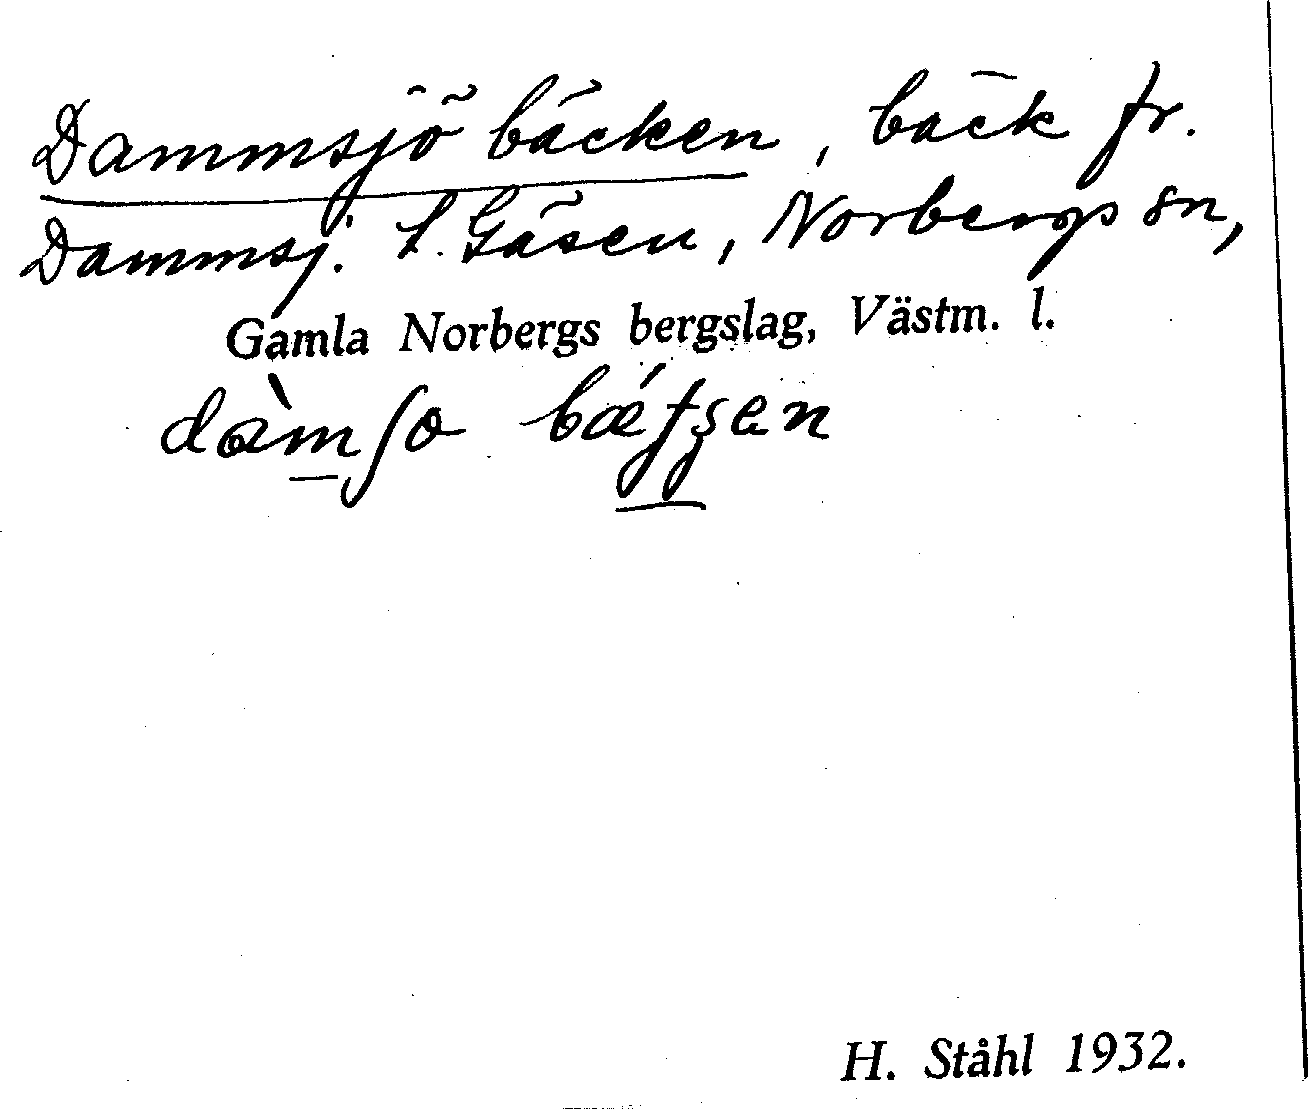 Dammsjöbäcken, bäck fr.
Dammsj. t. Gäsen, Norbergs sn,
Gamla Norbergs bergslag, Västm. l.
dàmʃo
H. Ståhl 1932.